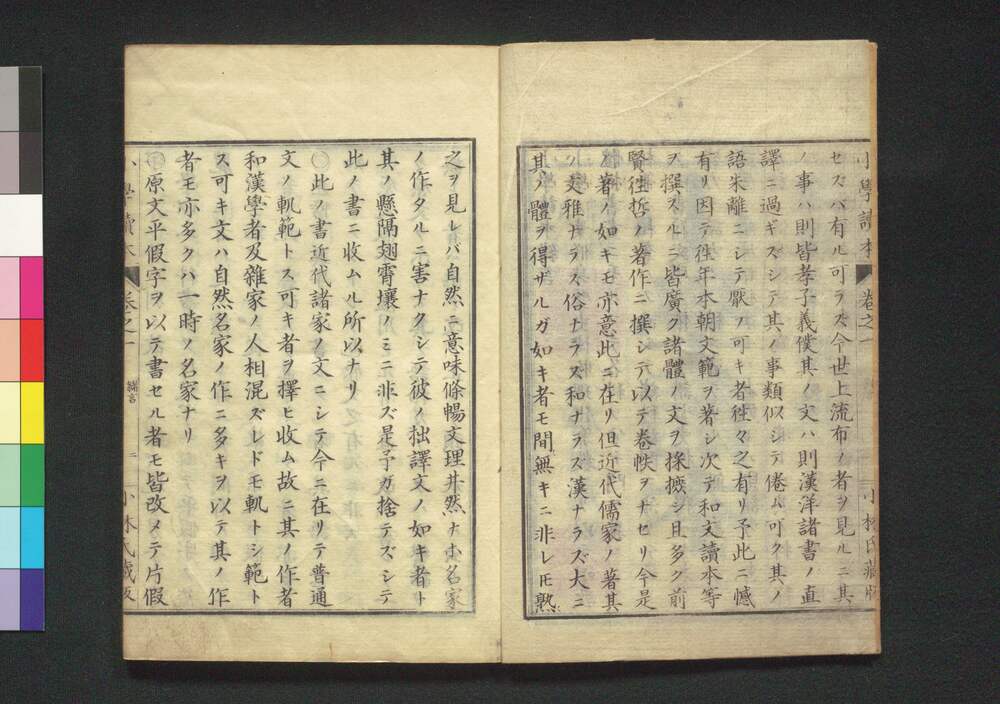 小學讀本 卷之一 小林氏藏版
セズバ有ル可ラズ今世上流布ノ者ヲ見ルニ其
ノ事ハ則皆孝子義僕其ノ文ハ則漢洋諸書ノ直
譯ニ過ギズシテ其ノ事類似シテ倦ム可ク其ノ
語朱離ニシテ厭ノ可キ者往々之有リ予此ニ憾
有リ因テ往年本朝文範ヲ著シ次デ和文讀本等
ヲ撰スルニ皆廣ク諸體ノ文ヲ採摭シ且多ク前
賢往哲ノ著作ニ撰シテ以テ卷帙ヲナセリ今是
ノ著ノ如キモ亦意此ニ在リ但近代儒家ノ著其
ノ文雅ナラズ俗ナラズ和ナラズ漢ナラズ大ニ
其ノ體ヲ得ザルガ如キ者モ間無キニ非レ𪜈熟
之ヲ見レバ自然ニ意味條暢文理井然ナホ名家
ノ作タルニ害ナクシテ彼ノ拙譯文ノ如キ者ト
其ノ懸隔翅霄壤ノミニ非ズ是予ガ捨テズシテ
此ノ書ニ收ムル所以ナリ
○此ノ書近代諸家ノ文ニシテ今ニ在リテ普通
文ノ軌範トス可キ者ヲ擇ヒ收ム故ニ其ノ作者
和漢學者及雜家ノ人相混ズレドモ軌トシ範ト
ス可キ文ハ自然名家ノ作ニ多キヲ以テ其ノ作
者モ亦多クハ一時ノ名家ナリ
○原文平假字ヲ以テ書セル者モ皆改メテ片假
小學讀本 卷之一 緒言 二 小林氏藏版